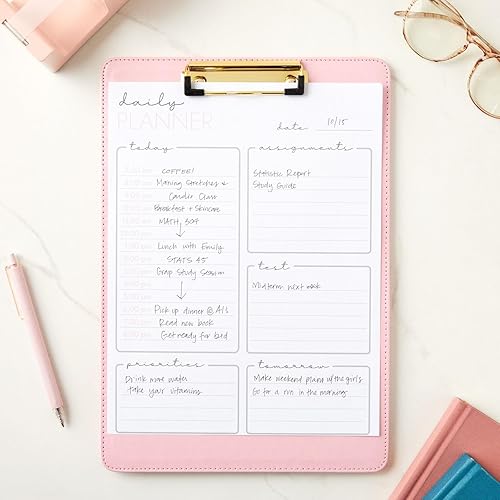 daily
PLANNER
date 10/15
today
COFFEE!
Morning Stretches &
Cardio Class
Breakfast + Skincare
MATH 307
Lunch with Emily
STATS 45
Group Study Session
Pick up dinner @ Al's
Read new book
Get ready for bed
assignments
Statistic Report
Study Guide
test
Midterm next week
priorities
Drink more water
take your vitamins
tomorrow
Make weekend plans w/ the girls
Go for a run in the morning